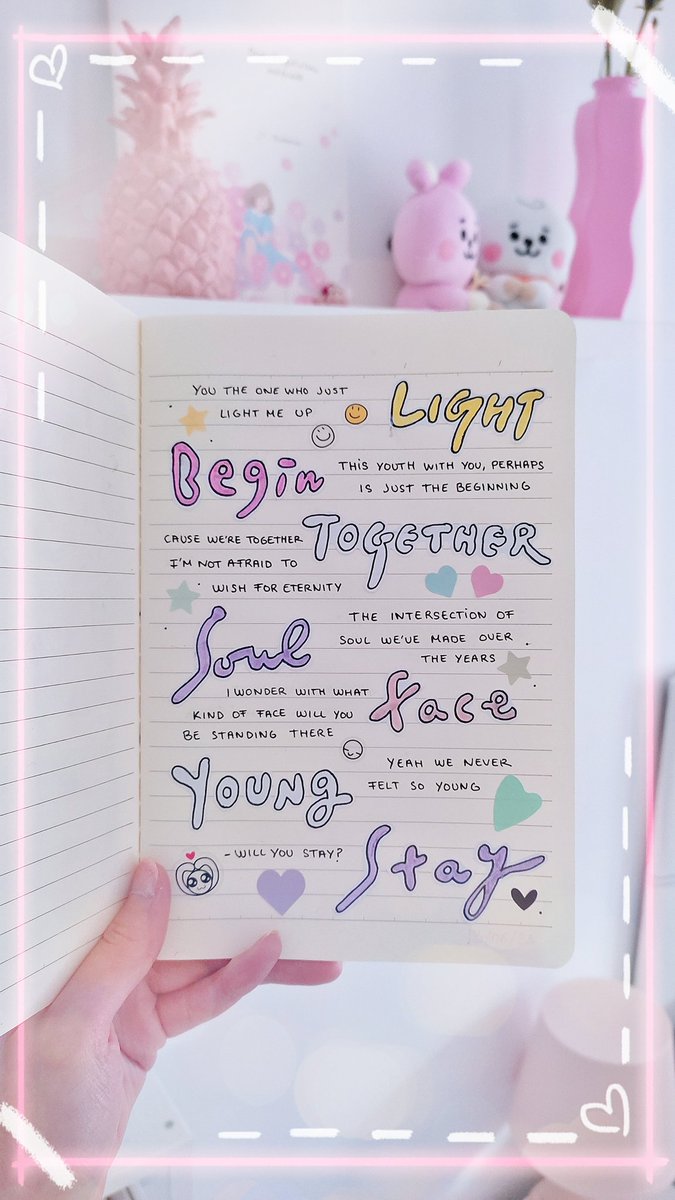 YOU THE ONE WHO JUST
LIGHT ME UP
LIGHT
Begin
THIS YOUTH WITH YOU, PERHAPS
IS JUST THE BEGINNING
CAUSE WE'RE TOGETHER
I'M NOT AFRAID TO
WISH FOR ETERNITY
TOGETHER
Soul
THE INTERSECTION OF
SOUL WE'VE MADE OVER
THE YEARS
I WONDER WITH WHAT
KIND OF FACE WILL YOU
BE STANDING THERE
face
YOUNG
YEAH WE NEVER
FELT SO YOUNG
- WILL YOU STAY?
Stay